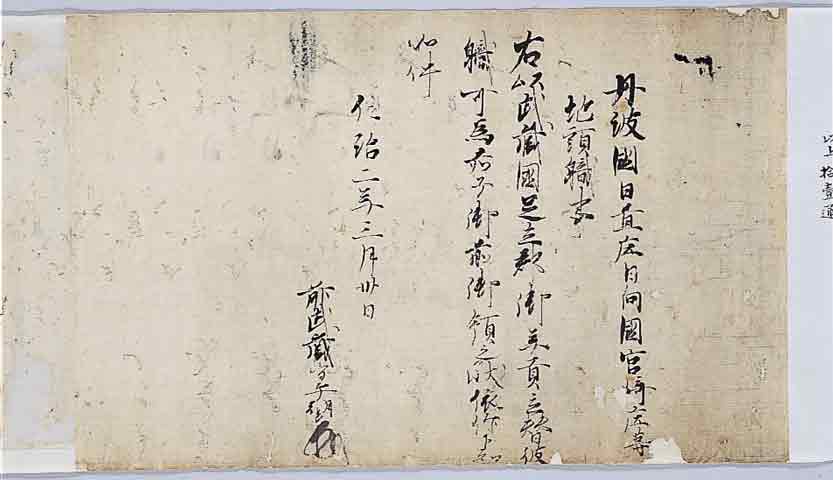 以上拾壹通
丹波國日置庄日向國宮埼庄等
地頭職事
右以武藏國足立郡御年貢之替彼
職可為若子御前御領之状依仰下知
如件
仁治二年三月卅日
前武藏守御判